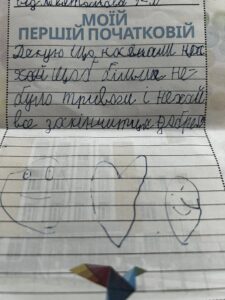 МОЇЙ
ПЕРШІЙ ПОЧАТКОВІЙ
Дякую що
щоб більше не-
було тривоги і нехай
все закінчиться добре